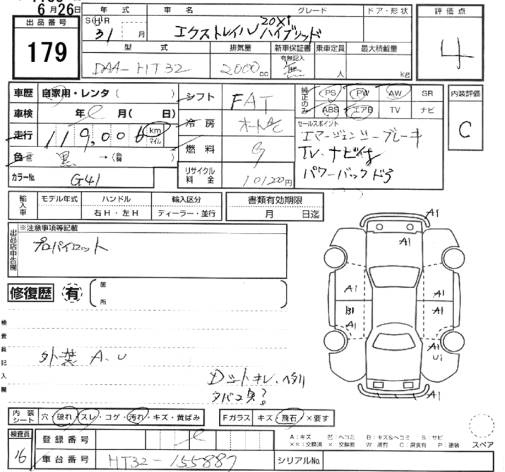 6月26日
出品番号
179
年 式
車 名
グレード
ドア・形状
評価点
S H R
31 月
エクストレイル ハイブリッド
20Xi
4
型 式
排気量
新車保証書
乗車定員
最大積載量
DAA-HT32
2000cc
有無記入
無
人
kg
車歴
自家用・レンタ( )
車検 年 月( 日)
走行 119,006 km マイル
色 黒 →(替)
カラーNo. G41
シフト FAT
冷房 オートAC
燃料
リサイクル料金 10120円
純正のみ
PS PW AW SR
ABS エアB TV ナビ
セールスポイント
エマージェンシーブレーキ
TV.ナビ付
パワーバックドア
内装評価
C
輸入車
モデル年式
ハンドル
輸入区分
右H・左H
ディーラー・並行
書類有効期限
月 日迄
出品店申告欄
※注意事項等記載
プロパイロット
修復歴 有
箇所
検査員記入欄
外装 A.U
A1
A1
A1
A1
B1
A1
A1
U1
A1
内装シート
穴・破れ・スレ・コゲ・汚れ・キズ・黄ばみ
Fガラス
キズ・飛石・×要す
検査員
16
登録番号
車台番号
HT32-155887
シリアルNo.
A:キズ
スペア